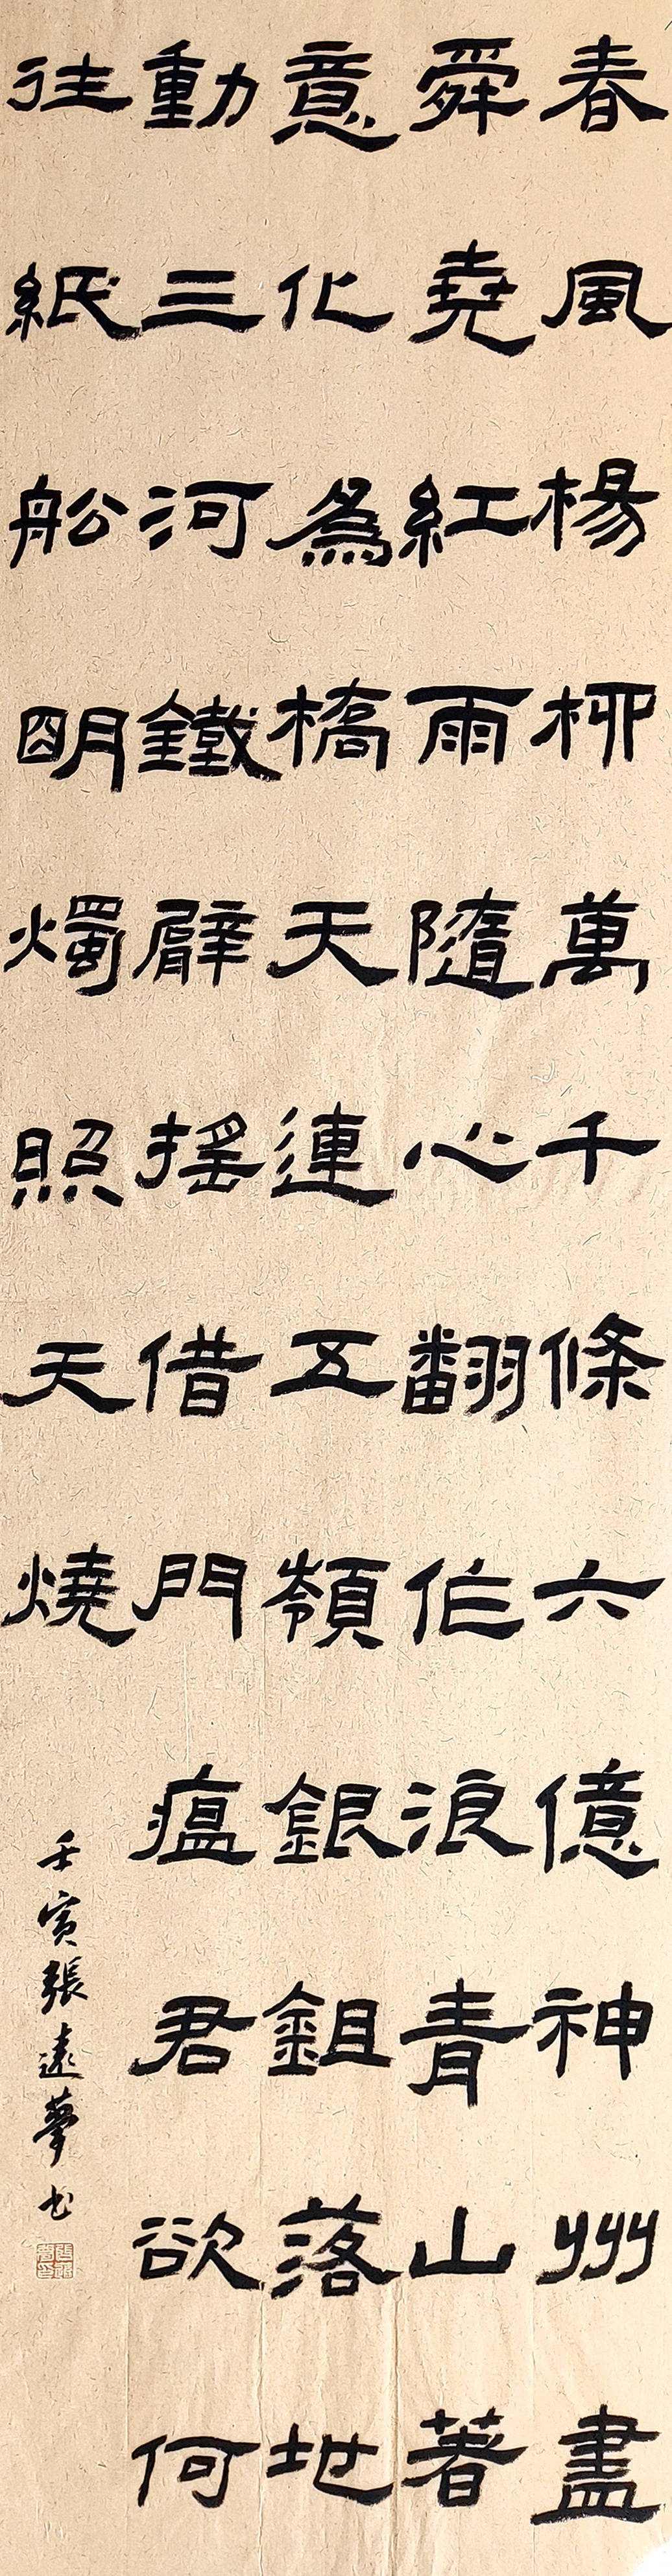 春風楊柳萬千條六億神州盡
舜堯紅雨隨心翻作浪青山著
意化為橋天連五嶺銀鉏落地
動三河鐵臂搖借問瘟君欲何
往紙船明燭照天燒
壬寅張遠夢书